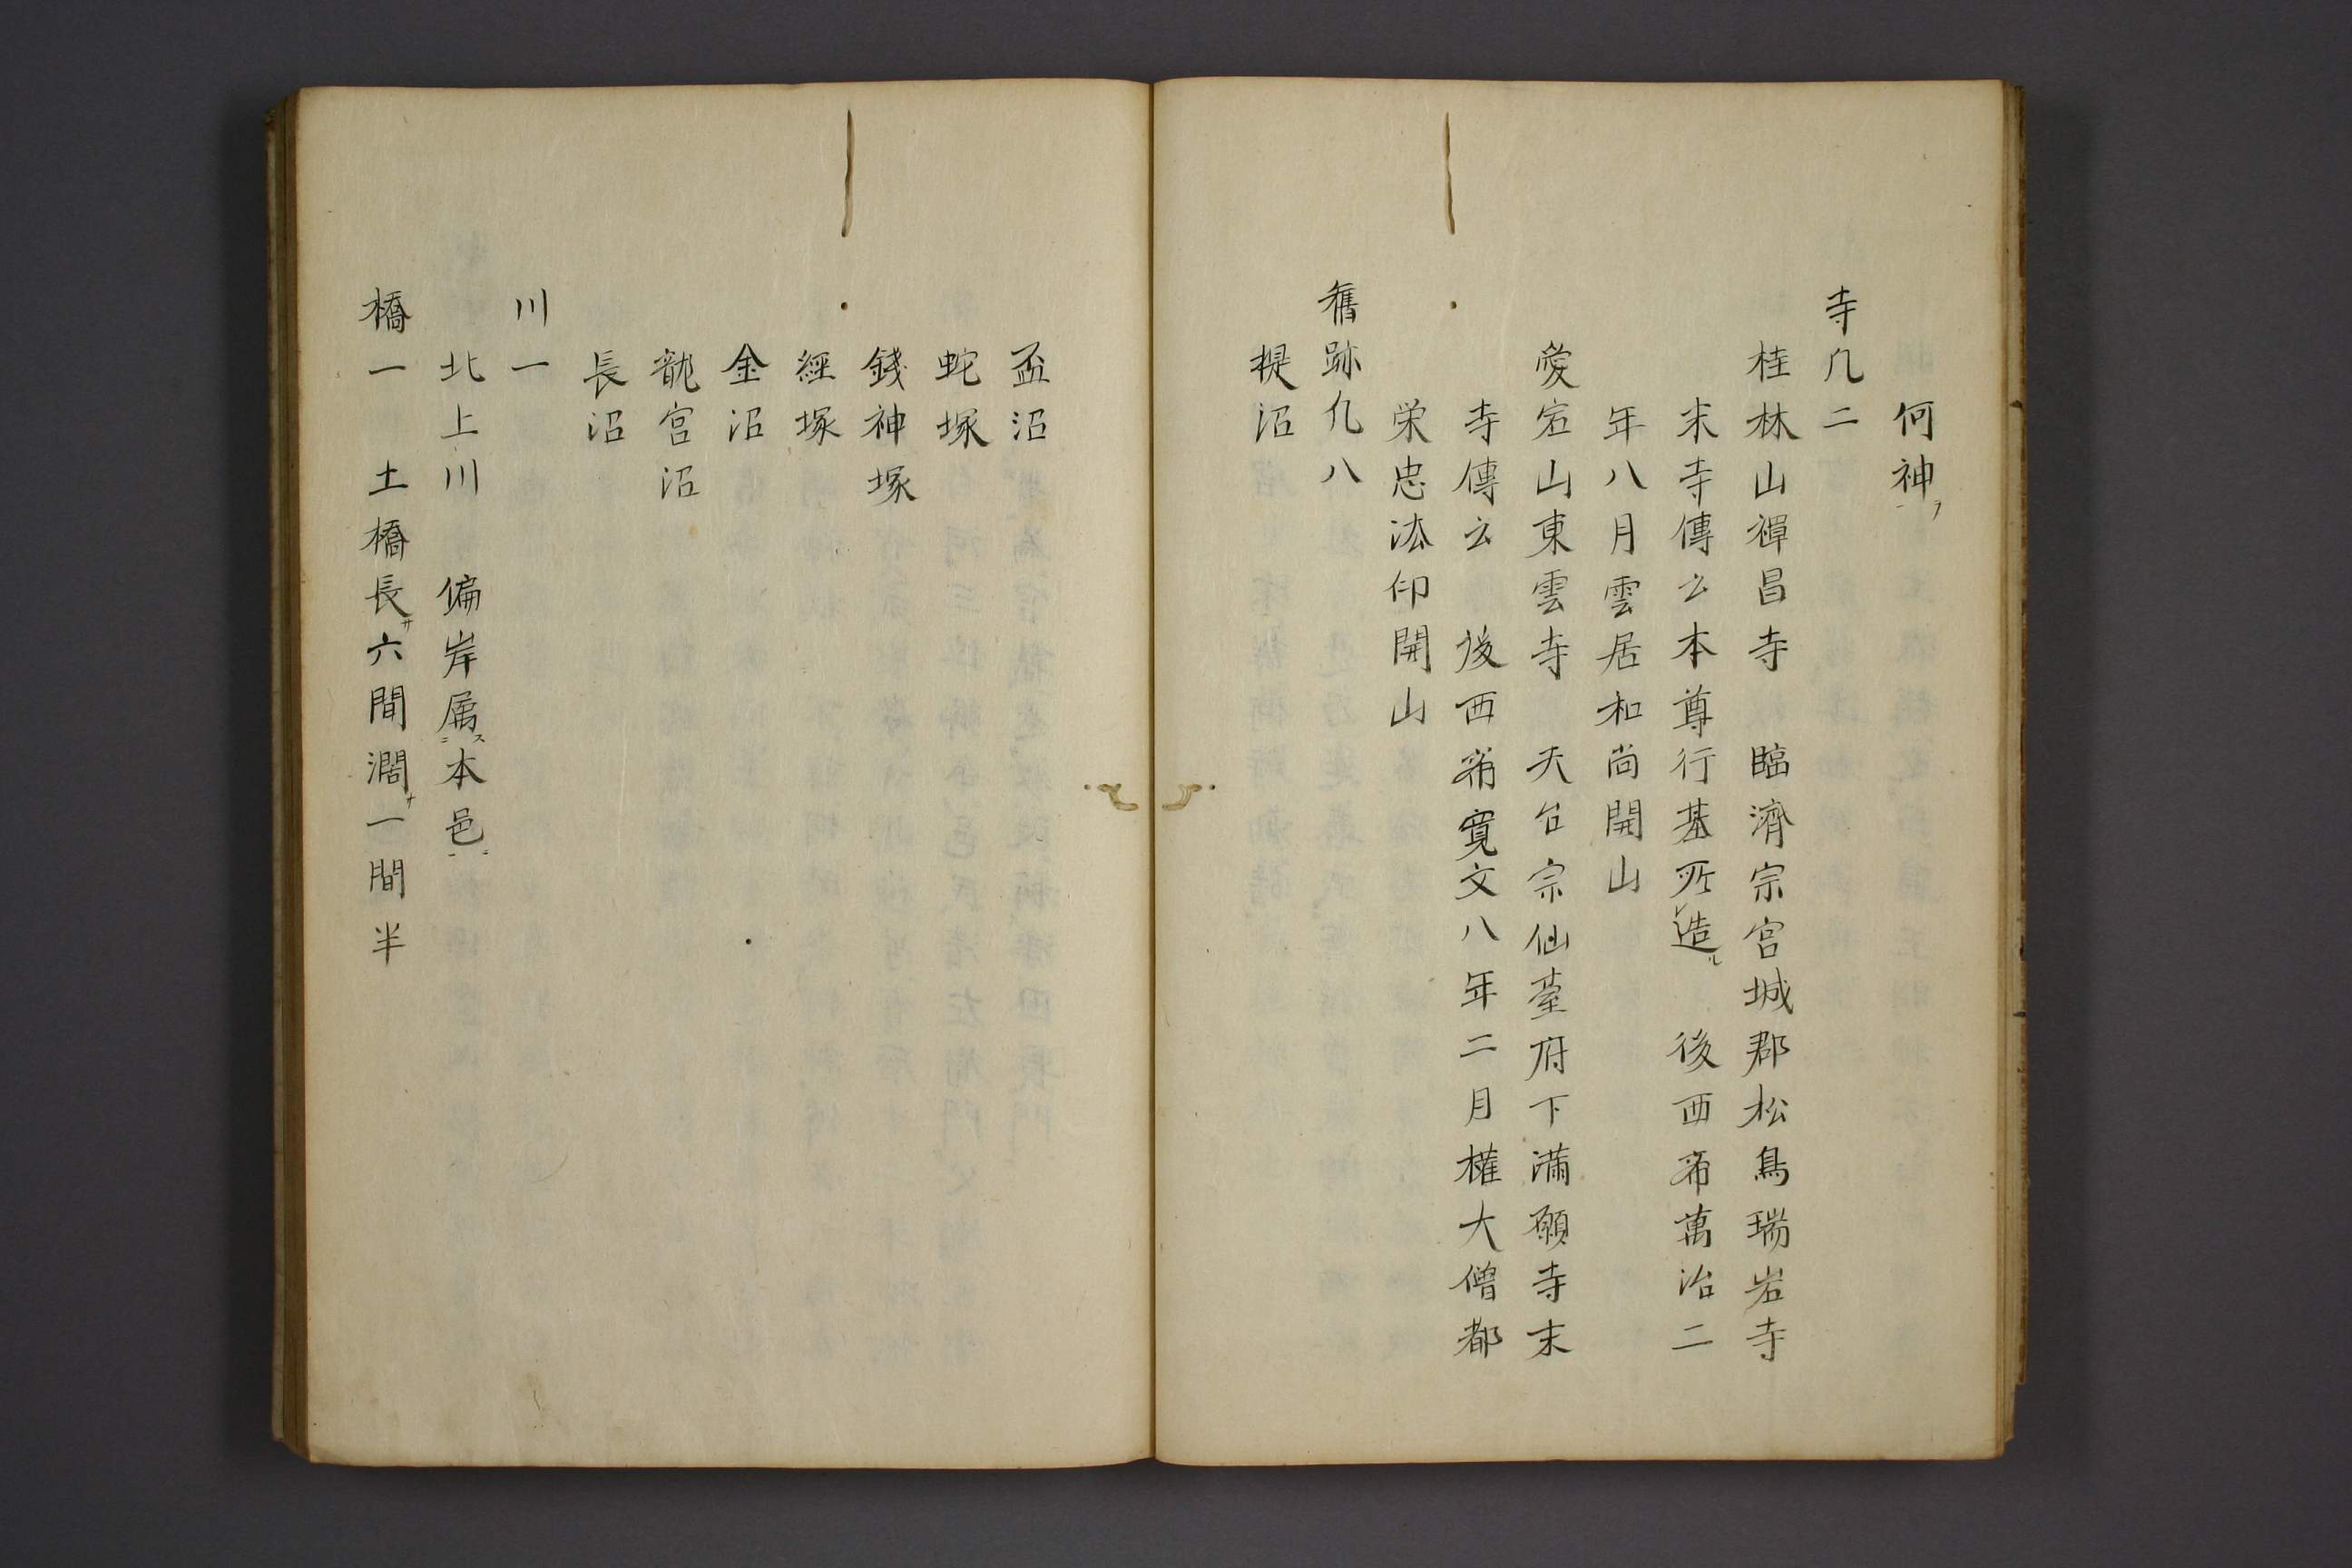 何神ヿ
寺凡二
桂林山禪昌寺　臨濟宗宮城郡松島瑞岩寺
末寺傳云本尊行基所レ造ル　後西帝萬治二
年八月雲居和尚開山
愛宕山東雲寺　天台宗仙臺府下滿願寺末
寺傳云　後西帝寛文八年二月權大僧都
栄忠法印開山
舊跡凡八
提沼
盃沼
蛇塚
錢神塚
經塚
金沼
龍宮沼
長沼
川一
北上川　偏岸属ス二本邑ニ一
橋一　土橋長サ六間濶サ一間半